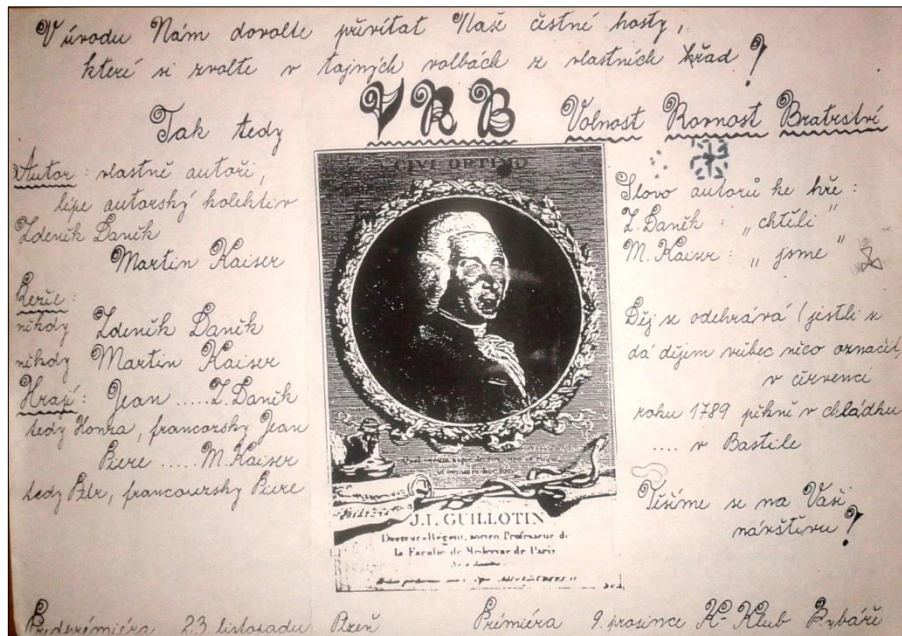 V úvodu Nám dovolte přivítat Naše čestné hosty,
které si zvolte v tajných volbách z vlastních řad!
Tak tedy
VRB Volnost Rovnost Bratrství
Autor: vlastně autoři,
lépe autorský kolektiv
Zdeněk Daněk
Martin Kaiser
Režie:
někdy Zdeněk Daněk
někdy Martin Kaiser
Hrají: Jean ..... Z. Daněk
tedy Honza, francouzsky Jean
Piere ..... M. Kaiser
tedy Petr, francouzsky Piere
CIVI OPTIMO
J.I. GUILLOTIN
Docteur-Régent, ancien Professeur de
la Faculté de Médecine de Paris
Slovo autorů ke hře:
Z. Daněk: „chtěli"
M. Kaiser: „jsme"
Děj se odehrává (jestli se
dá dějem vůbec něco označit,
v červenci
roku 1789 pěkně v chládku
.... v Bastile
Těšíme se na Vaši
návštěvu!
Předpremiéra 23. listopadu Plzeň Prémiéra 9. prosince K-Klub Rybáře